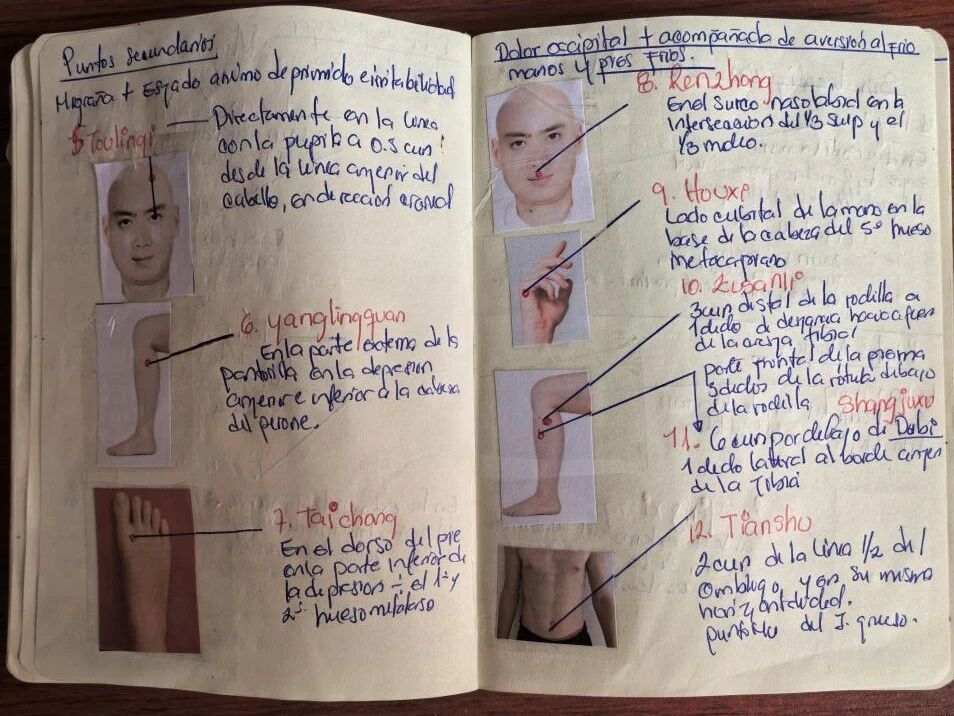 Puntos secundarios
Migraña + Esgado animo deprimido e irritabilidad
5 Toulingi
Directamente en la linea
con la pupila a 0.5 cun
desde la linea anterior del
cabello, en dirección craneal
6. yanglingquan
En la parte externa de la
pantorilla en la depresion
anterior e inferior a la cabeza
del perone.
7. Taichong
En el dorso del pie
en la parte inferior de
la depresion ÷ el 1º y
2º hueso metatarso
Dolor occipital + acompañada de aversion al Frio
manos y pies Frios.
8. Renzhong
En el surco nasolabial en la
interseccion del 1/3 sup y el
1/3 medio.
9. Houxi
Lado cubital de la mano en la
base de la cabeza del 5º hueso
10. Zusanli
3cun distal de la rodilla a
1 dedo de
de la tibial
parte frontal de la pierna
3 dedos de la rotula debajo
de la rodilla
Shangjuxu
11. 6 cun por debajo de Dubi
1 dedo lateral al borde anter
de la Tibia
12. Tianshu
2 cun de la linea 1/2 del
ombligo, y en su misma
horizontalidad.
punto Mu del I. grueso.